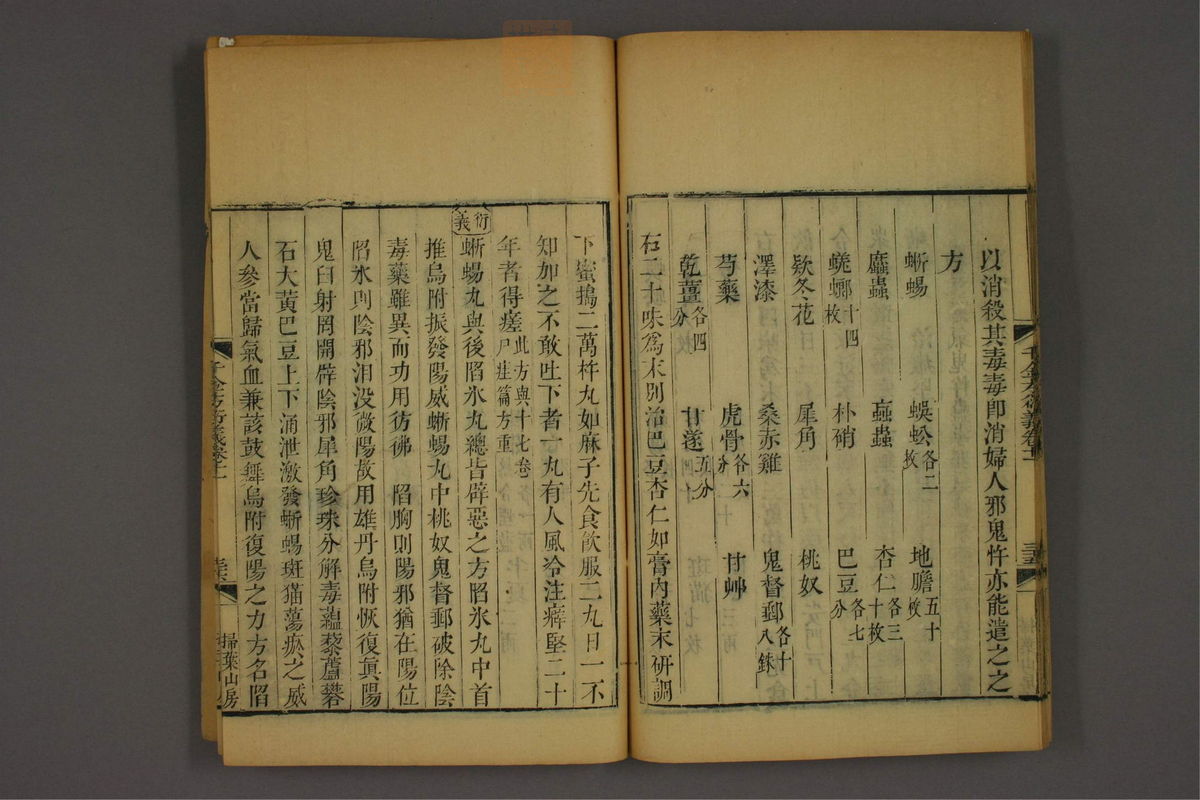 以消殺其毒毒即消婦人邪鬼忤亦能遣之之
方
蜥蜴 蜈蚣各二枚 地膽五十枚
䗪蟲 蝱蟲 杏仁各三十枚
蜣螂十四枚 朴硝 巴豆各七分
欵冬花 犀角 桃奴
澤漆 桑赤雞 鬼督郵各十八銖
芍藥 虎骨各六分 甘艸
乾薑各四分 甘遂五分
右二十味爲末別治巴豆杏仁如膏內藥末研調
下蜜搗二萬杵丸如麻子先食飲服二丸日一不
知加之不敢吐下者一丸有人風冷注癖堅二十
年者得瘥此方與十七卷尸疰篇方重
衍義
蜥蜴丸與後陷氷丸總皆辟惡之方陷氷丸中首
推烏附振發陽威蜥蜴丸中桃奴鬼督郵破除陰
毒藥雖異而功用彷彿 陷胸則陽邪猶在陽位
陷氷則陰邪泪没微陽故用雄丹烏附恢復眞陽
鬼臼射罔開辟陰邪犀角珍珠分解毒蘊藜蘆礬
石大黃巴豆上下涌泄激發蜥蜴斑猫蕩瘀之威
人參當歸氣血兼該鼓舞烏附復陽之力方名陷
千金方衍義卷十一
掃葉山房